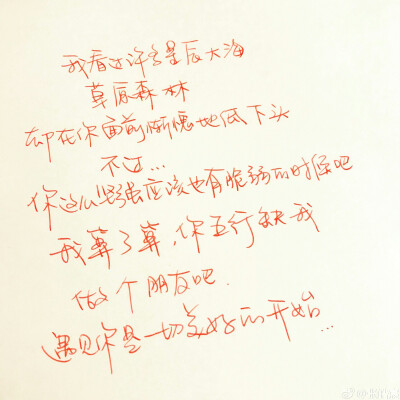 我看过许多星辰大海
草原森林
却在你面前惭愧地低下头
不过...
你这么坚强应该也有脆弱的时候吧
我算了算,你五行缺我
做个朋友吧.
遇见你是一切美好的开始...